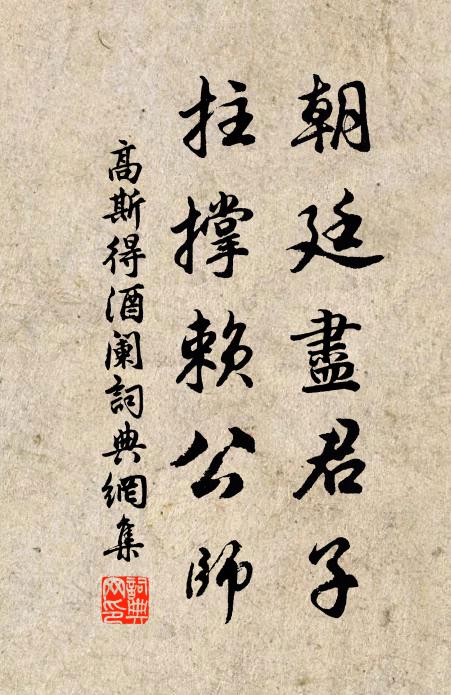 朝廷盡君子
拄撐賴公師
高斯得酒闌詞典網集
詞典网印